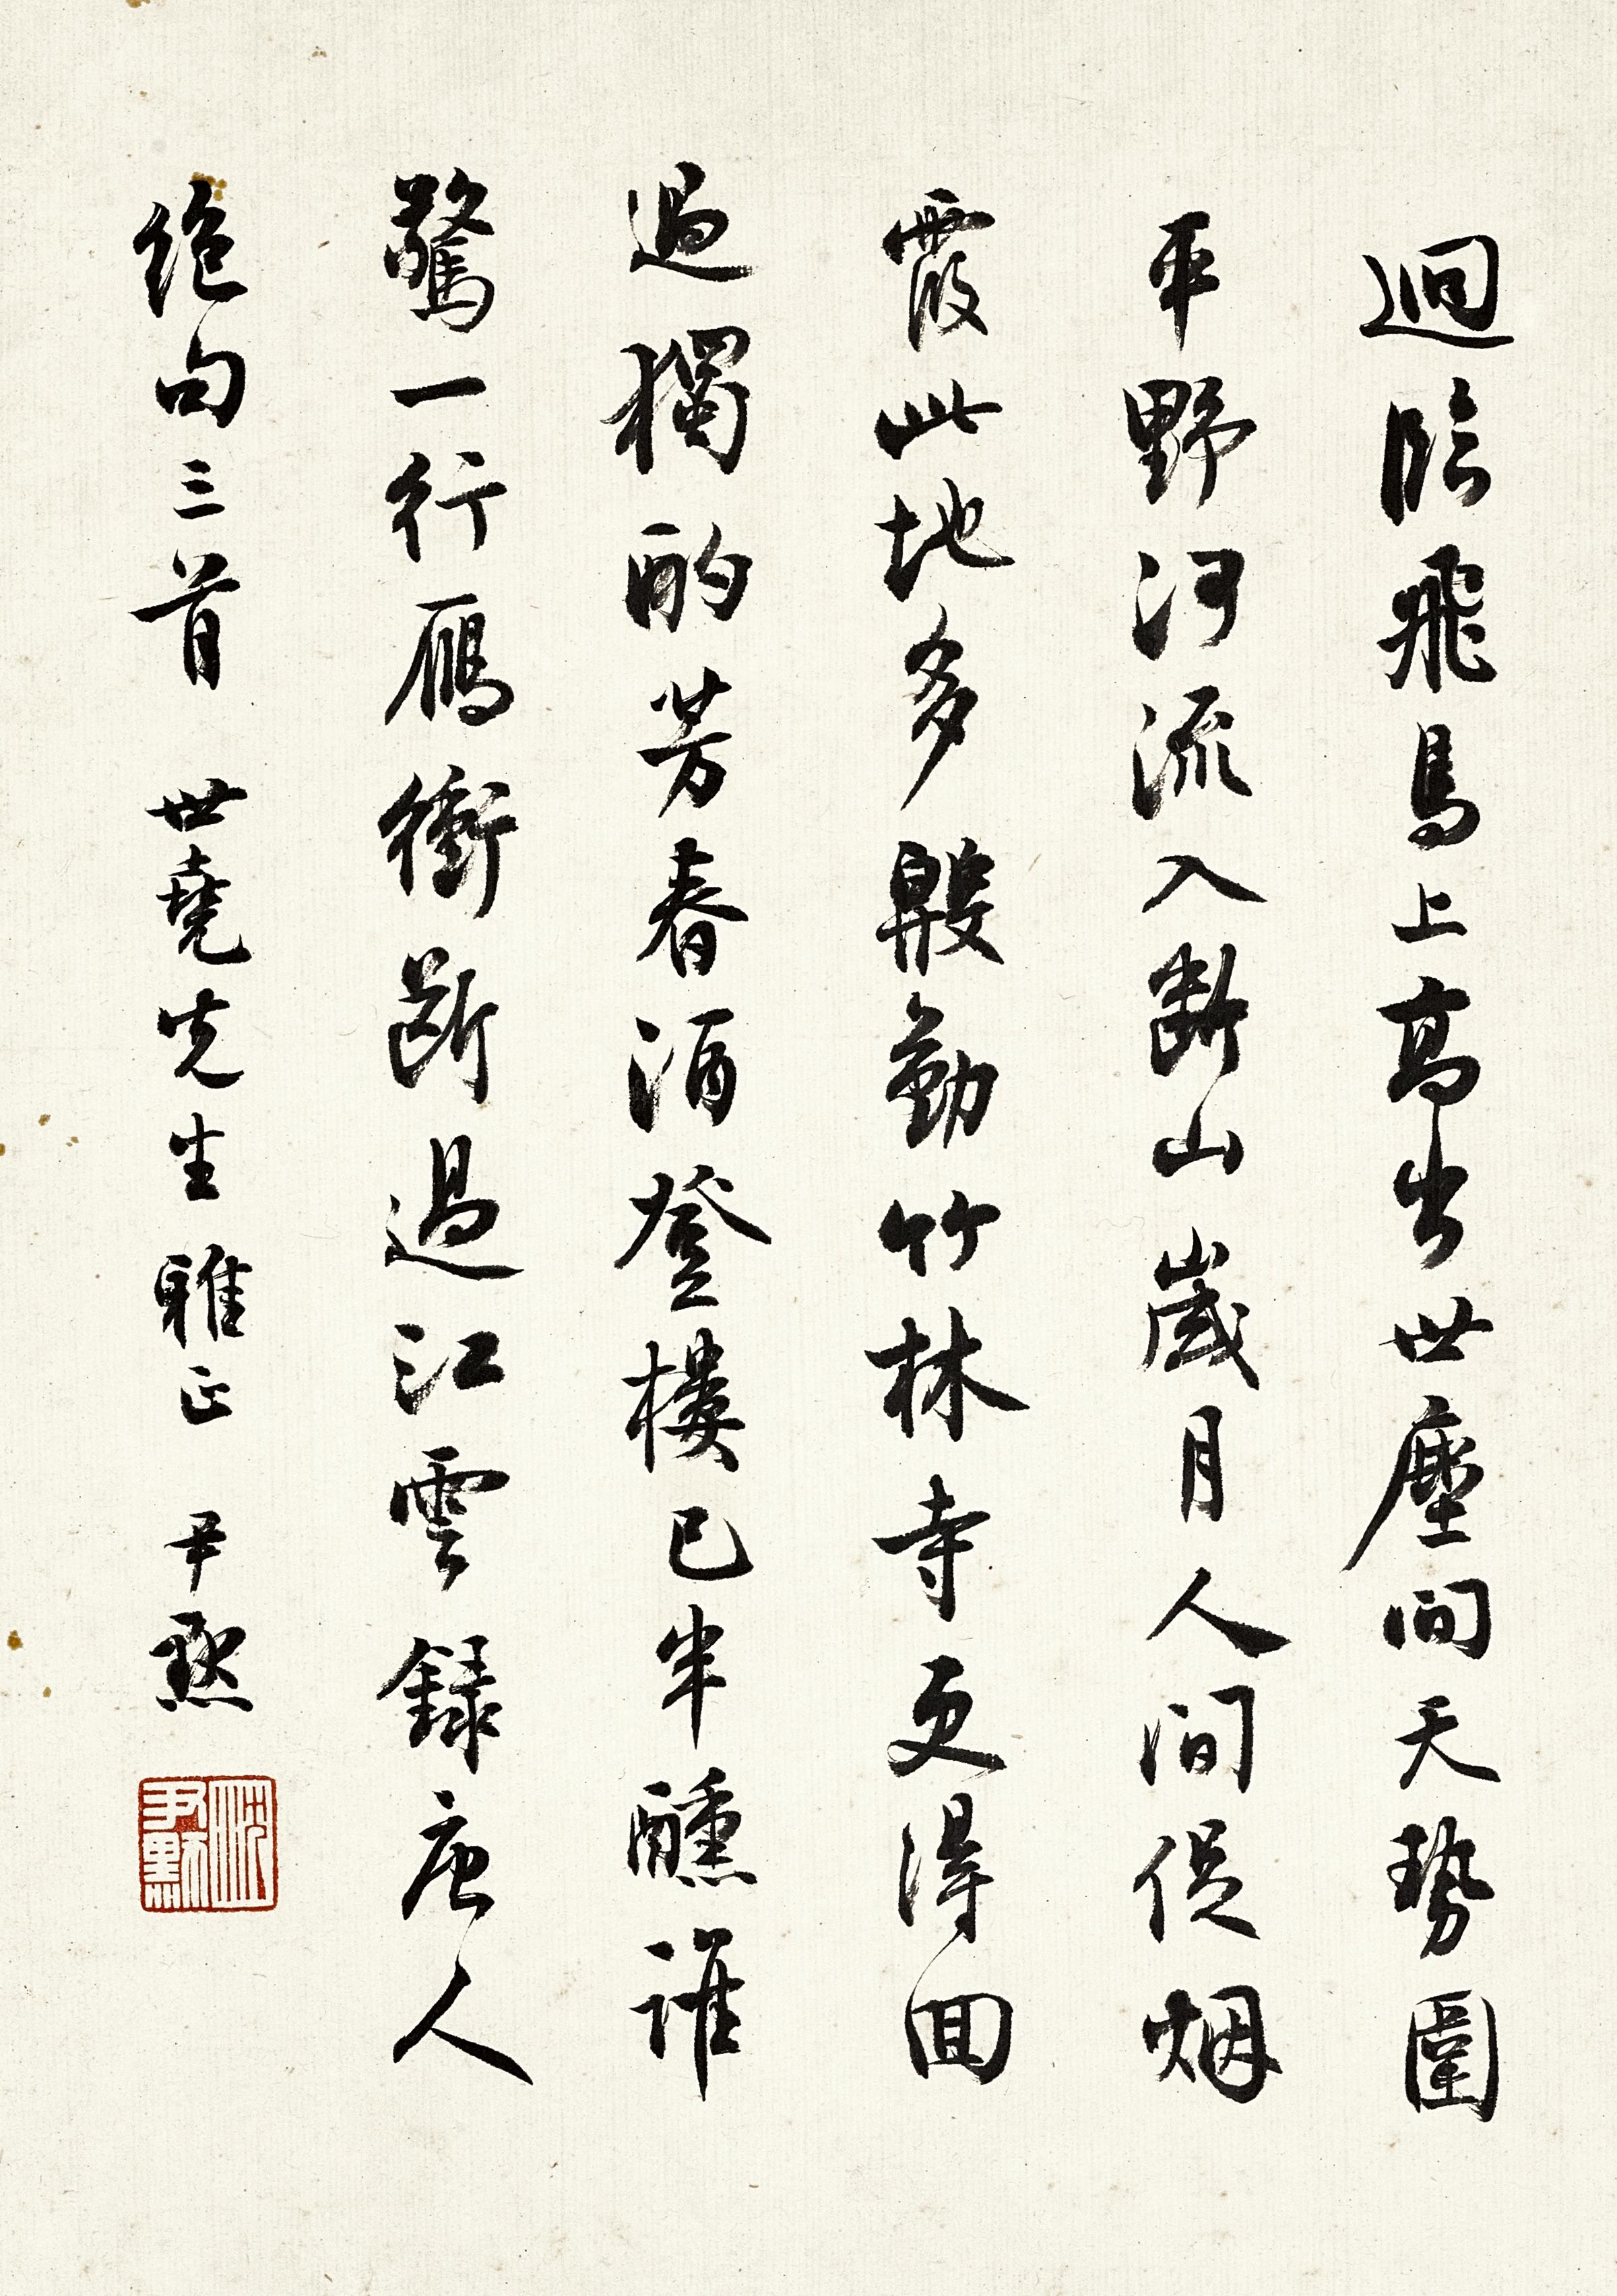 迥臨飛鳥上高出世塵間天勢圍
平野河流入斷山歲月人間促烟
霞此地多殷勤竹林寺更得回
過獨酌芳春酒登樓已半醺誰
驚一行雁衝斷過江雲錄唐人
絕句三首 世堯先生雅正 尹默
尹默